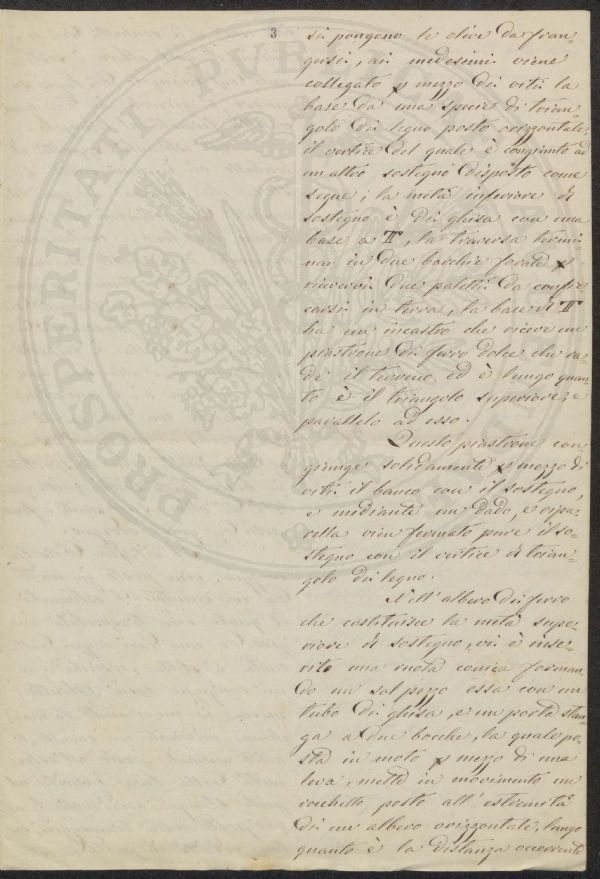 3
si pongono le olive da fran-
gersi, ai medesimi viene
collegato p mezzo di viti la
base da una specie di trian-
golo di legno posto orizzontale
il vertice del quale è congiunto ad
un altro sostegno disposto come
segue; la metà inferiore di
sostegno è di ghisa con una
base a T, la traversa termi-
na in due borchie forate p
ricevervi due paletti da confic-
carsi in terra, la base di T
ha un incastro che riceve un
piastrone di ferro dolce che ra-
de il terreno ed è lungo quan-
to è il triangolo superiore, e
parallelo ad esso.
Questo piastrone con-
giunge solidamente p mezzo di
viti il banco con il sostegno,
e mediante un dado, e ripa-
rella vien fermato pure il so-
stegno con il vertice di trian-
golo di legno.
Nell' albero di ferro
che costituisce la metà supe-
riore di sostegno, vi è inse-
rita una ruota conica forman-
do un sol pezzo essa con un
tubo di ghisa, e un porta stan-
ga a due bocche, la quale po-
sta in moto p mezzo di una
leva, mette in movimento un
rocchetto posto all' estremità
di un albero orizzontale, lungo
quanto è la distanza occorrente
PROSPERITATI PVB